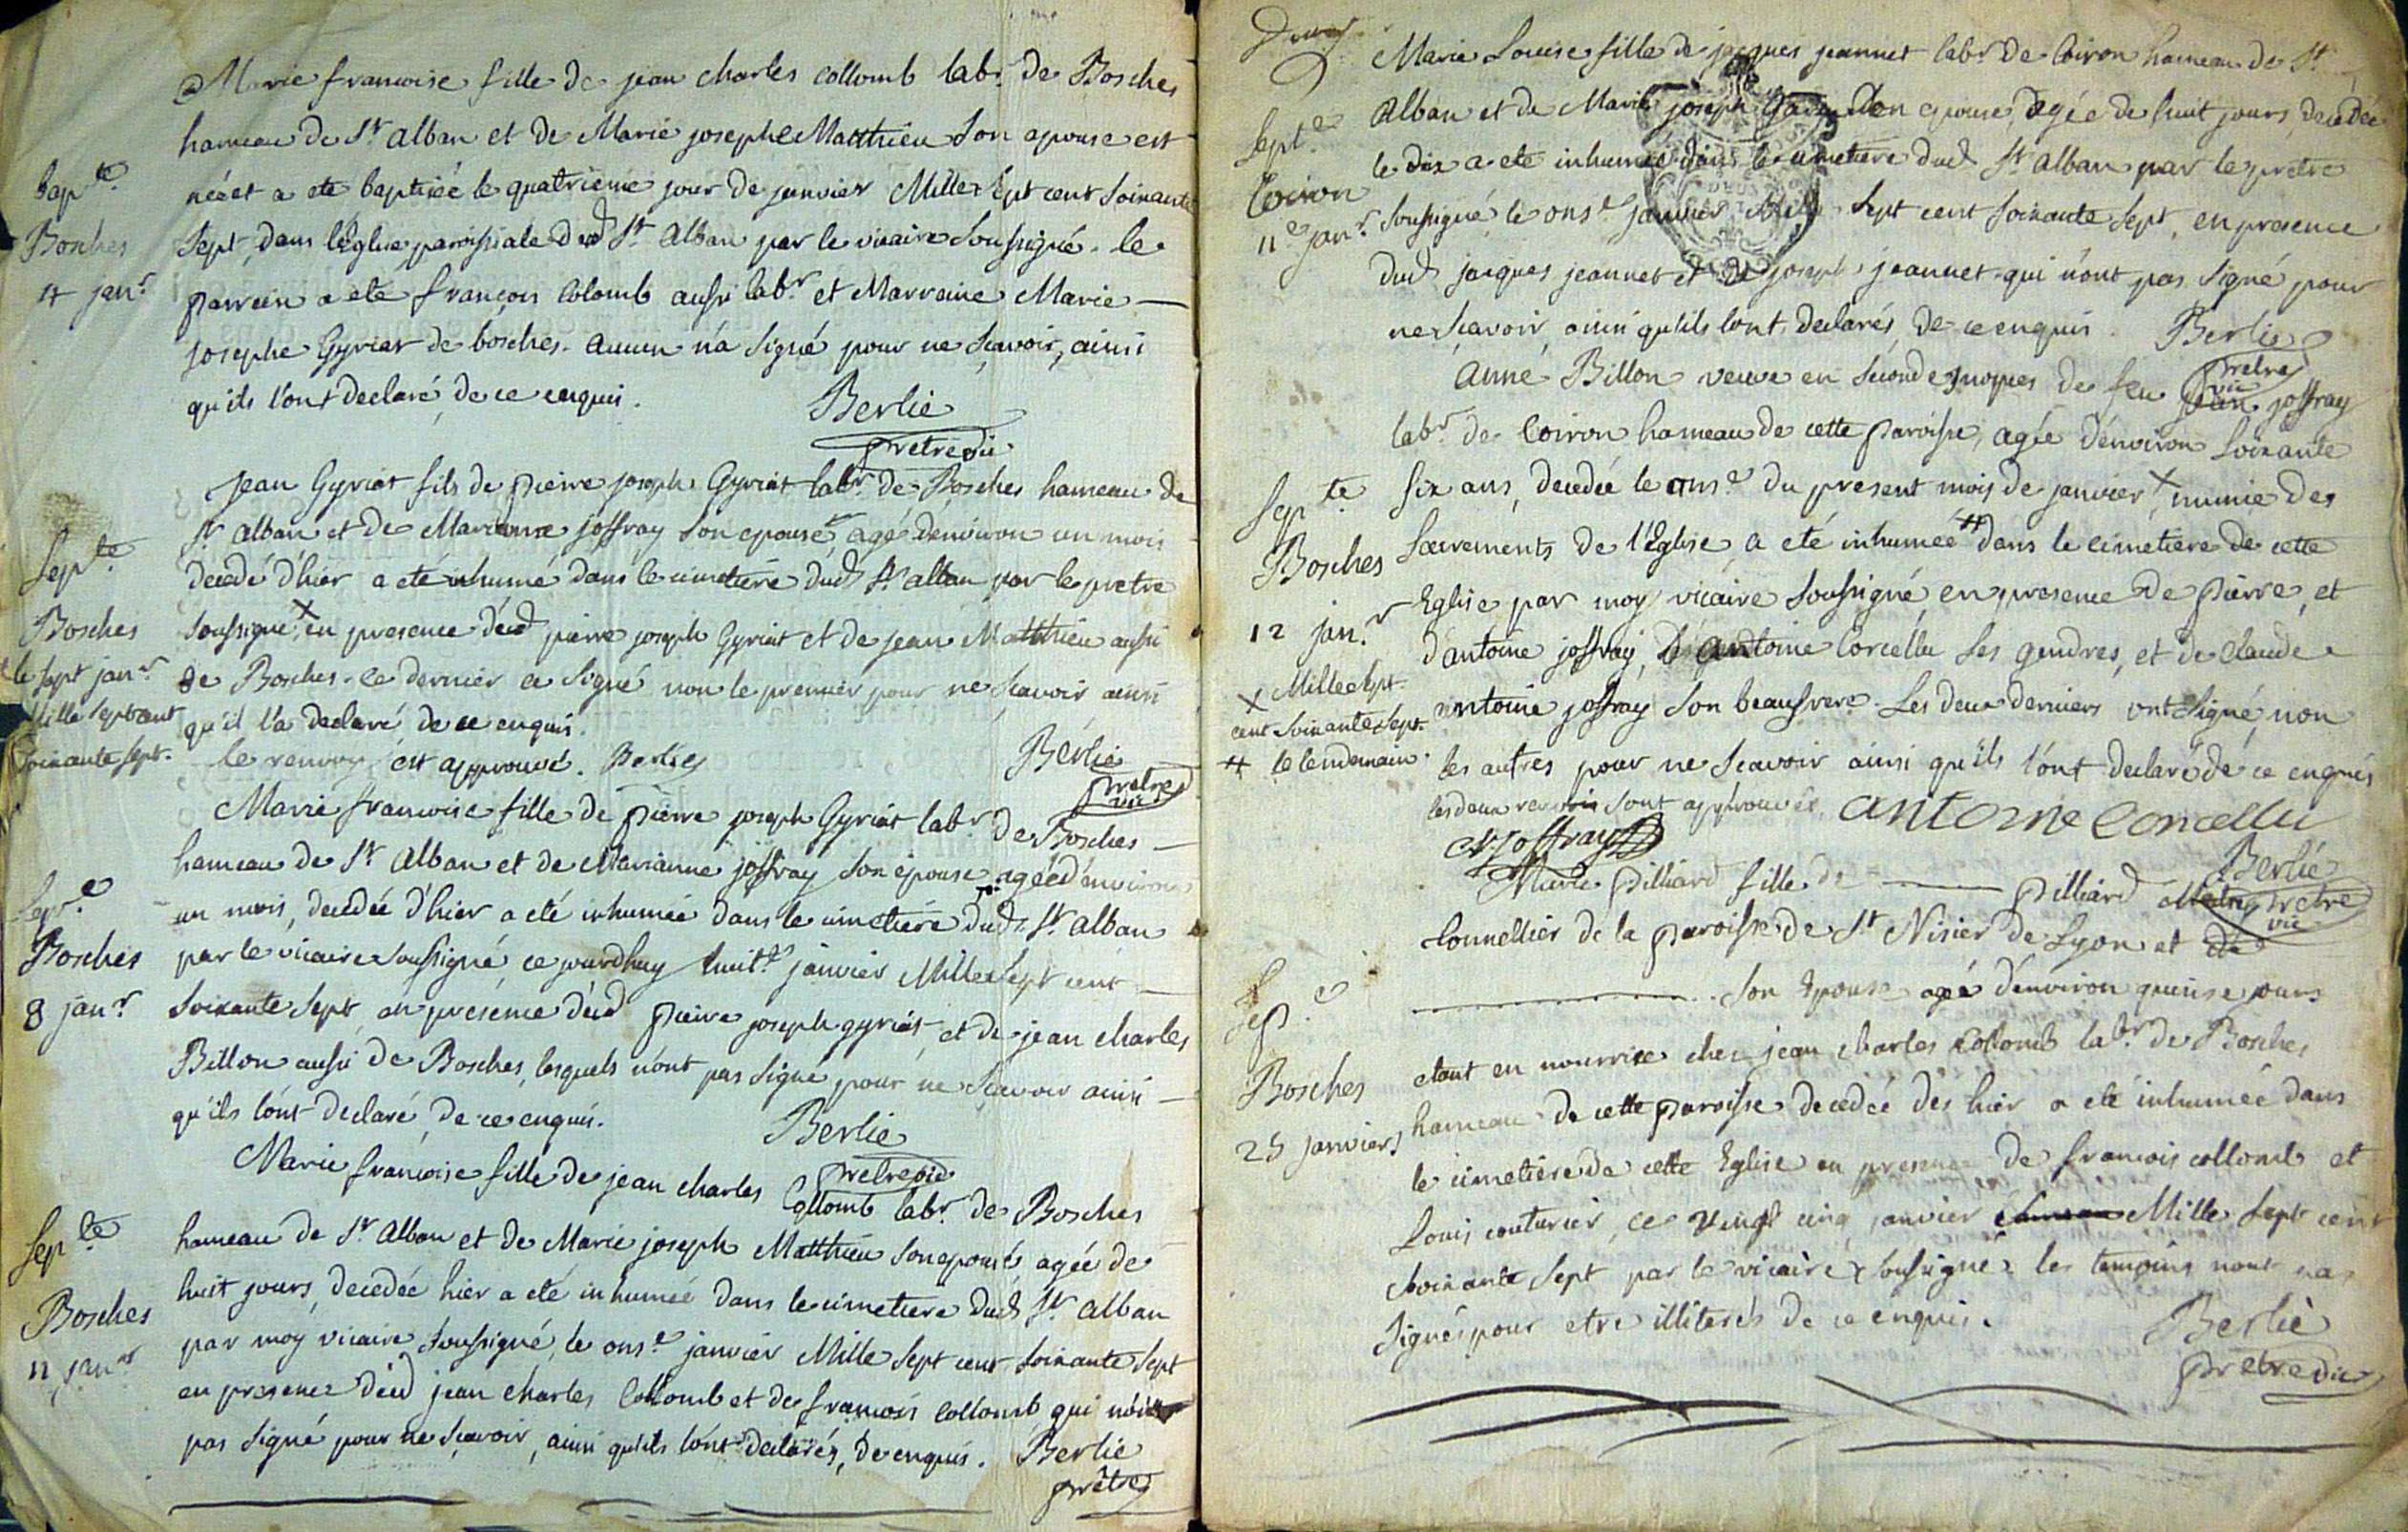 Marie francoise fille de jean charles collomb labr. de Bosches
hameau de St alban et de Marie josephe Matthieu son epouse est
née et a eté baptisée le quatrieme jour de janvier Mille Sept cent soixante
Bapte.
Bosches
4 janr.
Sept, dans l'Eglise paroissiale dud St Alban par le vicaire soussigné. le
parrein a eté françois Colomb aussi labr. et Marraine Marie
josephe Gyriat de bosches. aucun n'a signé pour ne sçavoir, ainsi
qu'ils l'ont declaré de ce enquis.
Berlié
pretre vic
Jean Gyriat fils de pierre joseph Gyriat labr. de Bosches hameau de
St Alban et de Marianne joffray son epouse agé d'environ un mois
Septe.
Bosches
le sept janr
Mille Sept cent
soixante sept.
decedé d'hier a eté inhumé dans le cimetiere dud St alban par le pretre
soussigné, x en presence dud pierre joseph Gyriat et de jean Matthieu aussi
de Bosches. ce dernier a signé non le premier pour ne sçavoir ainsi
qu'il l'a declaré de ce enquis.
le renvoy est approuvé. Berlié
Berlié
pretre vic
Marie francoise fille de pierre joseph Gyriat labr. de Bosches
hameau de St Alban et de Marianne joffray son epouse agée d'environ
Sepe.
Bosches
8 janr
un mois, decedée d'hier a eté inhumée dans le cimetiere dud St alban
par le vicaire soussigné ce jourdhuy huite janvier Mille Sept cent
soixante sept en presence dud pierre joseph gyriat et de jean charles
Billon aussi de Bosches, lesquels n'ont pas signé pour ne sçavoir ainsi
qu'ils l'ont declaré de ce enquis.
Berlié
pretre vic
Marie francoise fille de jean charles Collomb labr. de Bosches
Septe
Bosches
11 janr
hameau de St Alban et de Marie joseph Matthieu son epouse agée de
huit jours, decedée hier a eté inhumée dans le cimetiere dud St. alban
par moy vicaire soussigné, le onse janvier Mille Sept cent soixante sept
en presence dud jean charles Collomb et de francois collomb qui n'ont
pas signé pour ne sçavoir, ainsi qu'ils l'ont declarés, de enquis. Berlié
prêtre
Marie Louise fille de jacques jeannet labr. de Coiron hameau de St.
Septe
Coiron
11e janr.
Alban et de Marie joseph son epouse, agée de huit jours, decedée
le dix a eté inhumée dans le cimetiere dud St. Alban par le pretre
soussigné, le onse janvier Mille Sept cent soixante sept, en presence
dud jacques jeannet et de joseph jeannet qui n'ont pas signé pour
ne sçavoir, ainsi qu'ils l'ont declarés, de ce enquis. Berlié
pretre
vic
Anne Billon veuve en seconde nopces de feu jean joffray
labr. de Coiron hameau de cette paroisse, agée d'environ soixante
Septe
Bosches
12 janr.
six ans, decedée le onse du present mois de janvier x, munie des
sacrements de l'Eglise a eté inhumée # dans le cimetiere de cette
Eglise par moy vicaire soussigné en presence de pierre, et
d'antoine joffray, d'antoine Corcellu ses gendres, et de claude
x Mille Sept
cent soixante sept.
# le lendemain.
antoine joffray son beaufrere. Les deux derniers ont signé, non
les autres pour ne sçavoir ainsi qu'ils l'ont declaré de ce enquis
les deux renvois sont approuvés. antoine Corcellu
Joffray
Berlié
pretre
vic
Marie pilliard fille de ——— pilliard Me
tonnellier de la paroisse de St Nisier de Lyon et de
Sepe
Bosches
25 janvier
............ son Epouse agée d'environ quinse jours
etant en nourrice chez jean charles Collomb labr. de Bosches
hameau de cette paroisse decedée des hier a eté inhumée dans
le cimetiere de cette Eglise en presence de francois collomb et
Louis couturier, ce vingt cinq janvier Mille Sept cent
soixante sept par le vicaire soussigné, les temoins n'ont pas
signés pour etre illiterés de ce enquis.
Berlié
pretre vic